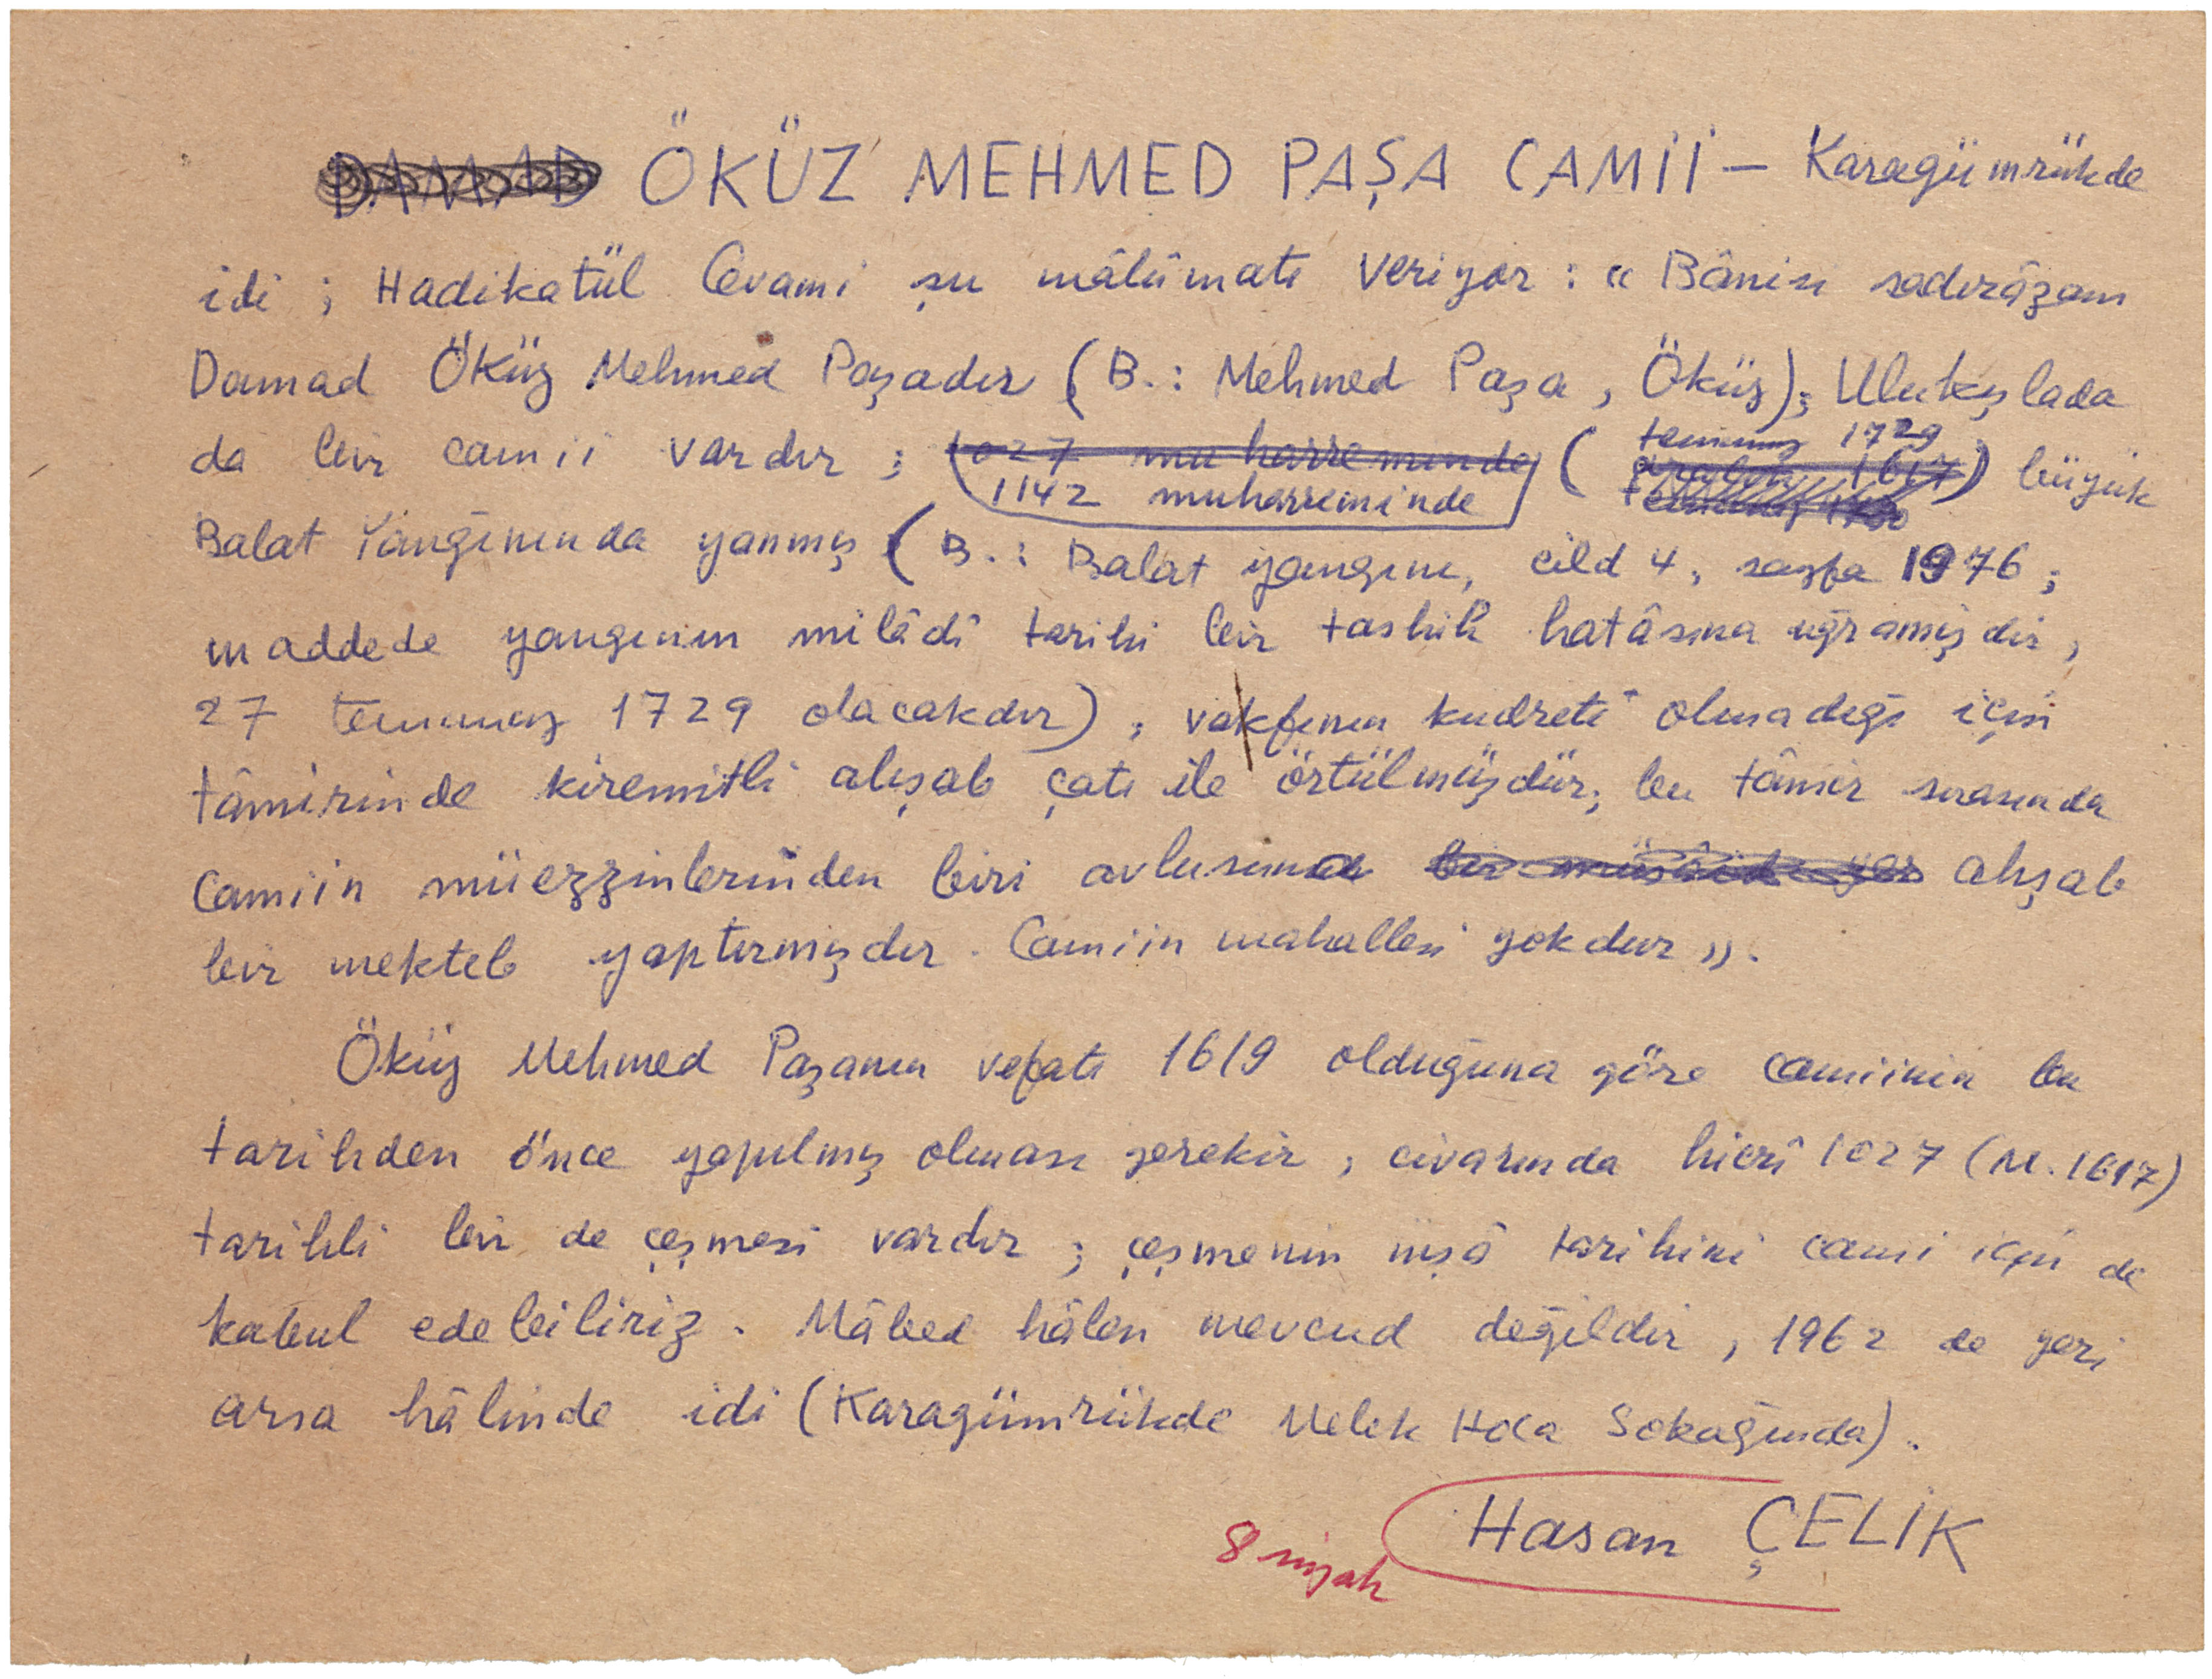 DAMAD ÖKÜZ MEHMED PAŞA CAMİİ — Karagümrükde
idi ; Hadikatül Cevami şu mâlûmatı veriyor : « Bânisi sadırâzam
Damad Öküz Mehmed Paşadır (B.: Mehmed Paşa, Öküz); Ulukışlada
da bir camii vardır ; 1027 muharreminde 1142 muharreminde ( temmuz 1729 aralık 1617 temmuz ) büyük
Balat Yangınında yanmış (B.: Balat yangını, cild 4, sayfa 1976 ;
maddede yangının milâdî tarihi bir tashih hatâsına uğramışdır,
27 temmuz 1729 olacakdır) ; vakfının kudreti olmadığı için
tâmirinde kiremitli ahşab çatı ile örtülmüşdür; bu tâmir sırasında
Camiin müezzinlerinden biri avlusuna bir müsâid yer ahşab
bir mekteb yaptırmışdır. Camiin mahallesi yokdur ».
Öküz Mehmed Paşanın vefatı 1619 olduğuna göre camiinin bu
tarihden önce yapılmış olması gerekir, civarında hicrî 1027 (M. 1617)
tarihli bir de çeşmesi vardır ; çeşmenin inşâ tarihini cami için de
kabul edebiliriz. Mâbed hâlen mevcud değildir, 1962 de yeri
arsa hâlinde idi (Karagümrükde Melek Hoca Sokağında).
Hasan ÇELİK
8 siyah